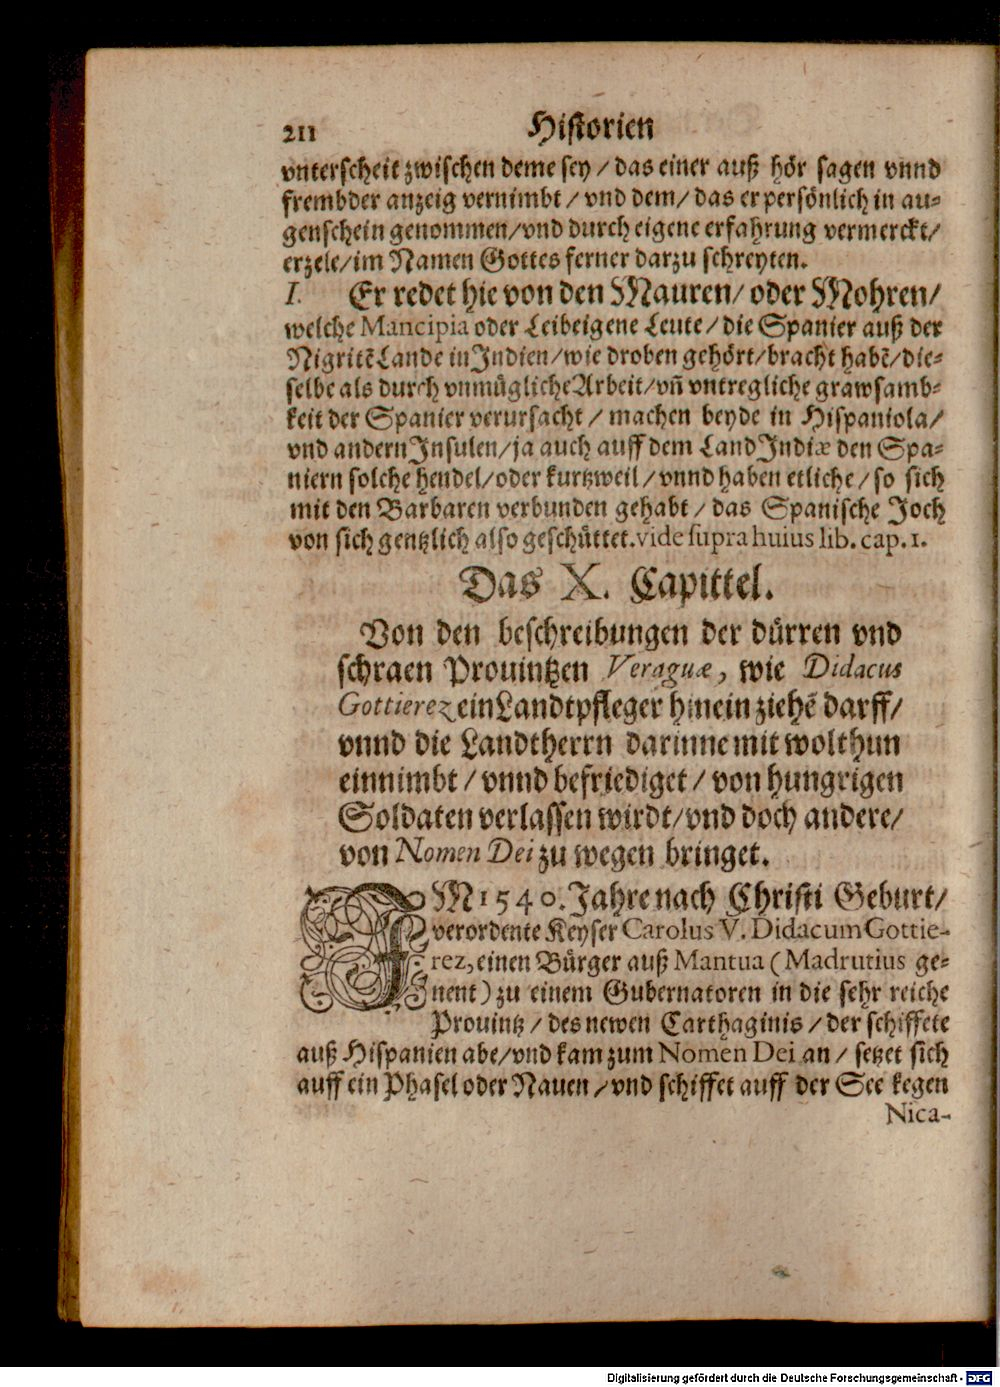 211 Historien
vnterscheit zwischen deme sey / das einer auß hör sagen vnnd
frembder anzeig vernimbt / vnd dem / das er persönlich in au⸗
genschein genommen / vnd durch eigene erfahrung vermerckt /
erzele / im Namen Gottes ferner darzu schreyten.
I. Er redet hie von den Mauren / oder Mohren /
welche Mancipia oder Leibeigene Leute / die Spanier auß der
Nigritẽ Lande in Indien / wie droben gehört / bracht habẽ / die⸗
selbe als durch vnmügliche Arbeit / vn̄ vntregliche grawsamb⸗
keit der Spanier verursacht / machen beyde in Hispaniola /
vnd andern Insulen / ja auch auff dem Land Indiæ den Spa⸗
niern solche hendel / oder kurtzweil / vnnd haben etliche / so sich
mit den Barbaren verbunden gehabt / das Spanische Joch
von sich gentzlich also geschüttet. vide supra huius lib. cap. 1.
Das X. Capittel.
Von den beschreibungen der dürren vnd
schraen Prouintzen Veraguæ, wie Didacus
Gottierez ein Landtpfleger hinein ziehẽ darff /
vnnd die Landtherrn darinne mit wolthun
einnimbt / vnnd befriediget / von hungrigen
Soldaten verlassen wirdt / vnd doch andere /
von Nomen Dei zu wegen bringet.
IM 1540. Jahre nach Christi Geburt /
verordente Keyser Carolus V. Didacum Gottie-
rez, einen Bürger auß Mantua (Madrutius ge⸗
nent) zu einem Gubernatoren in die sehr reiche
Prouintz / des newen Carthaginis / der schiffete
auß Hispanien abe / vnd kam zum Nomen Dei an / setzet sich
auff ein Phasel oder Nauen / vnd schiffet auff der See kegen
Nica-
Digitalisierung gefördert durch die Deutsche Forschungsgemeinschaft - DFG